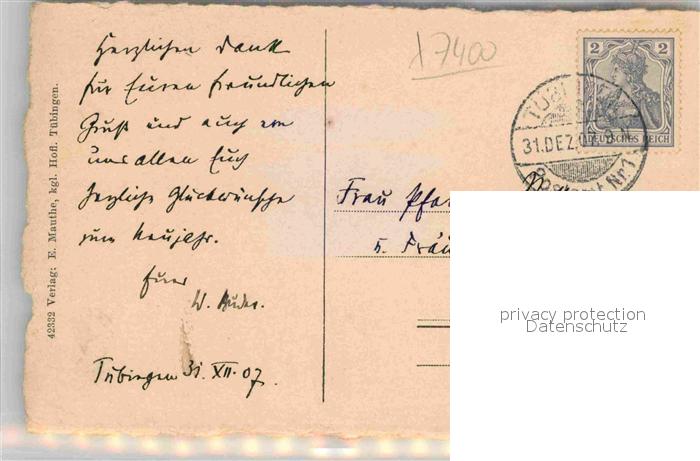 Herzlichen Dank
für Euren freundlichen
Gruß und auch von
uns allen Euch
herzliche Glückwünsche
zum Neujahr.
Euer
W.
Tübingen 31. XII. 07.
42332 Verlag: E. Mauthe, kgl. Hofl. Tübingen.
17400
2 2
DEUTSCHES REICH
TÜBINGEN
31.DEZ.
Postamt Nr 1
Frau
u.
privacy protection
Datenschutz